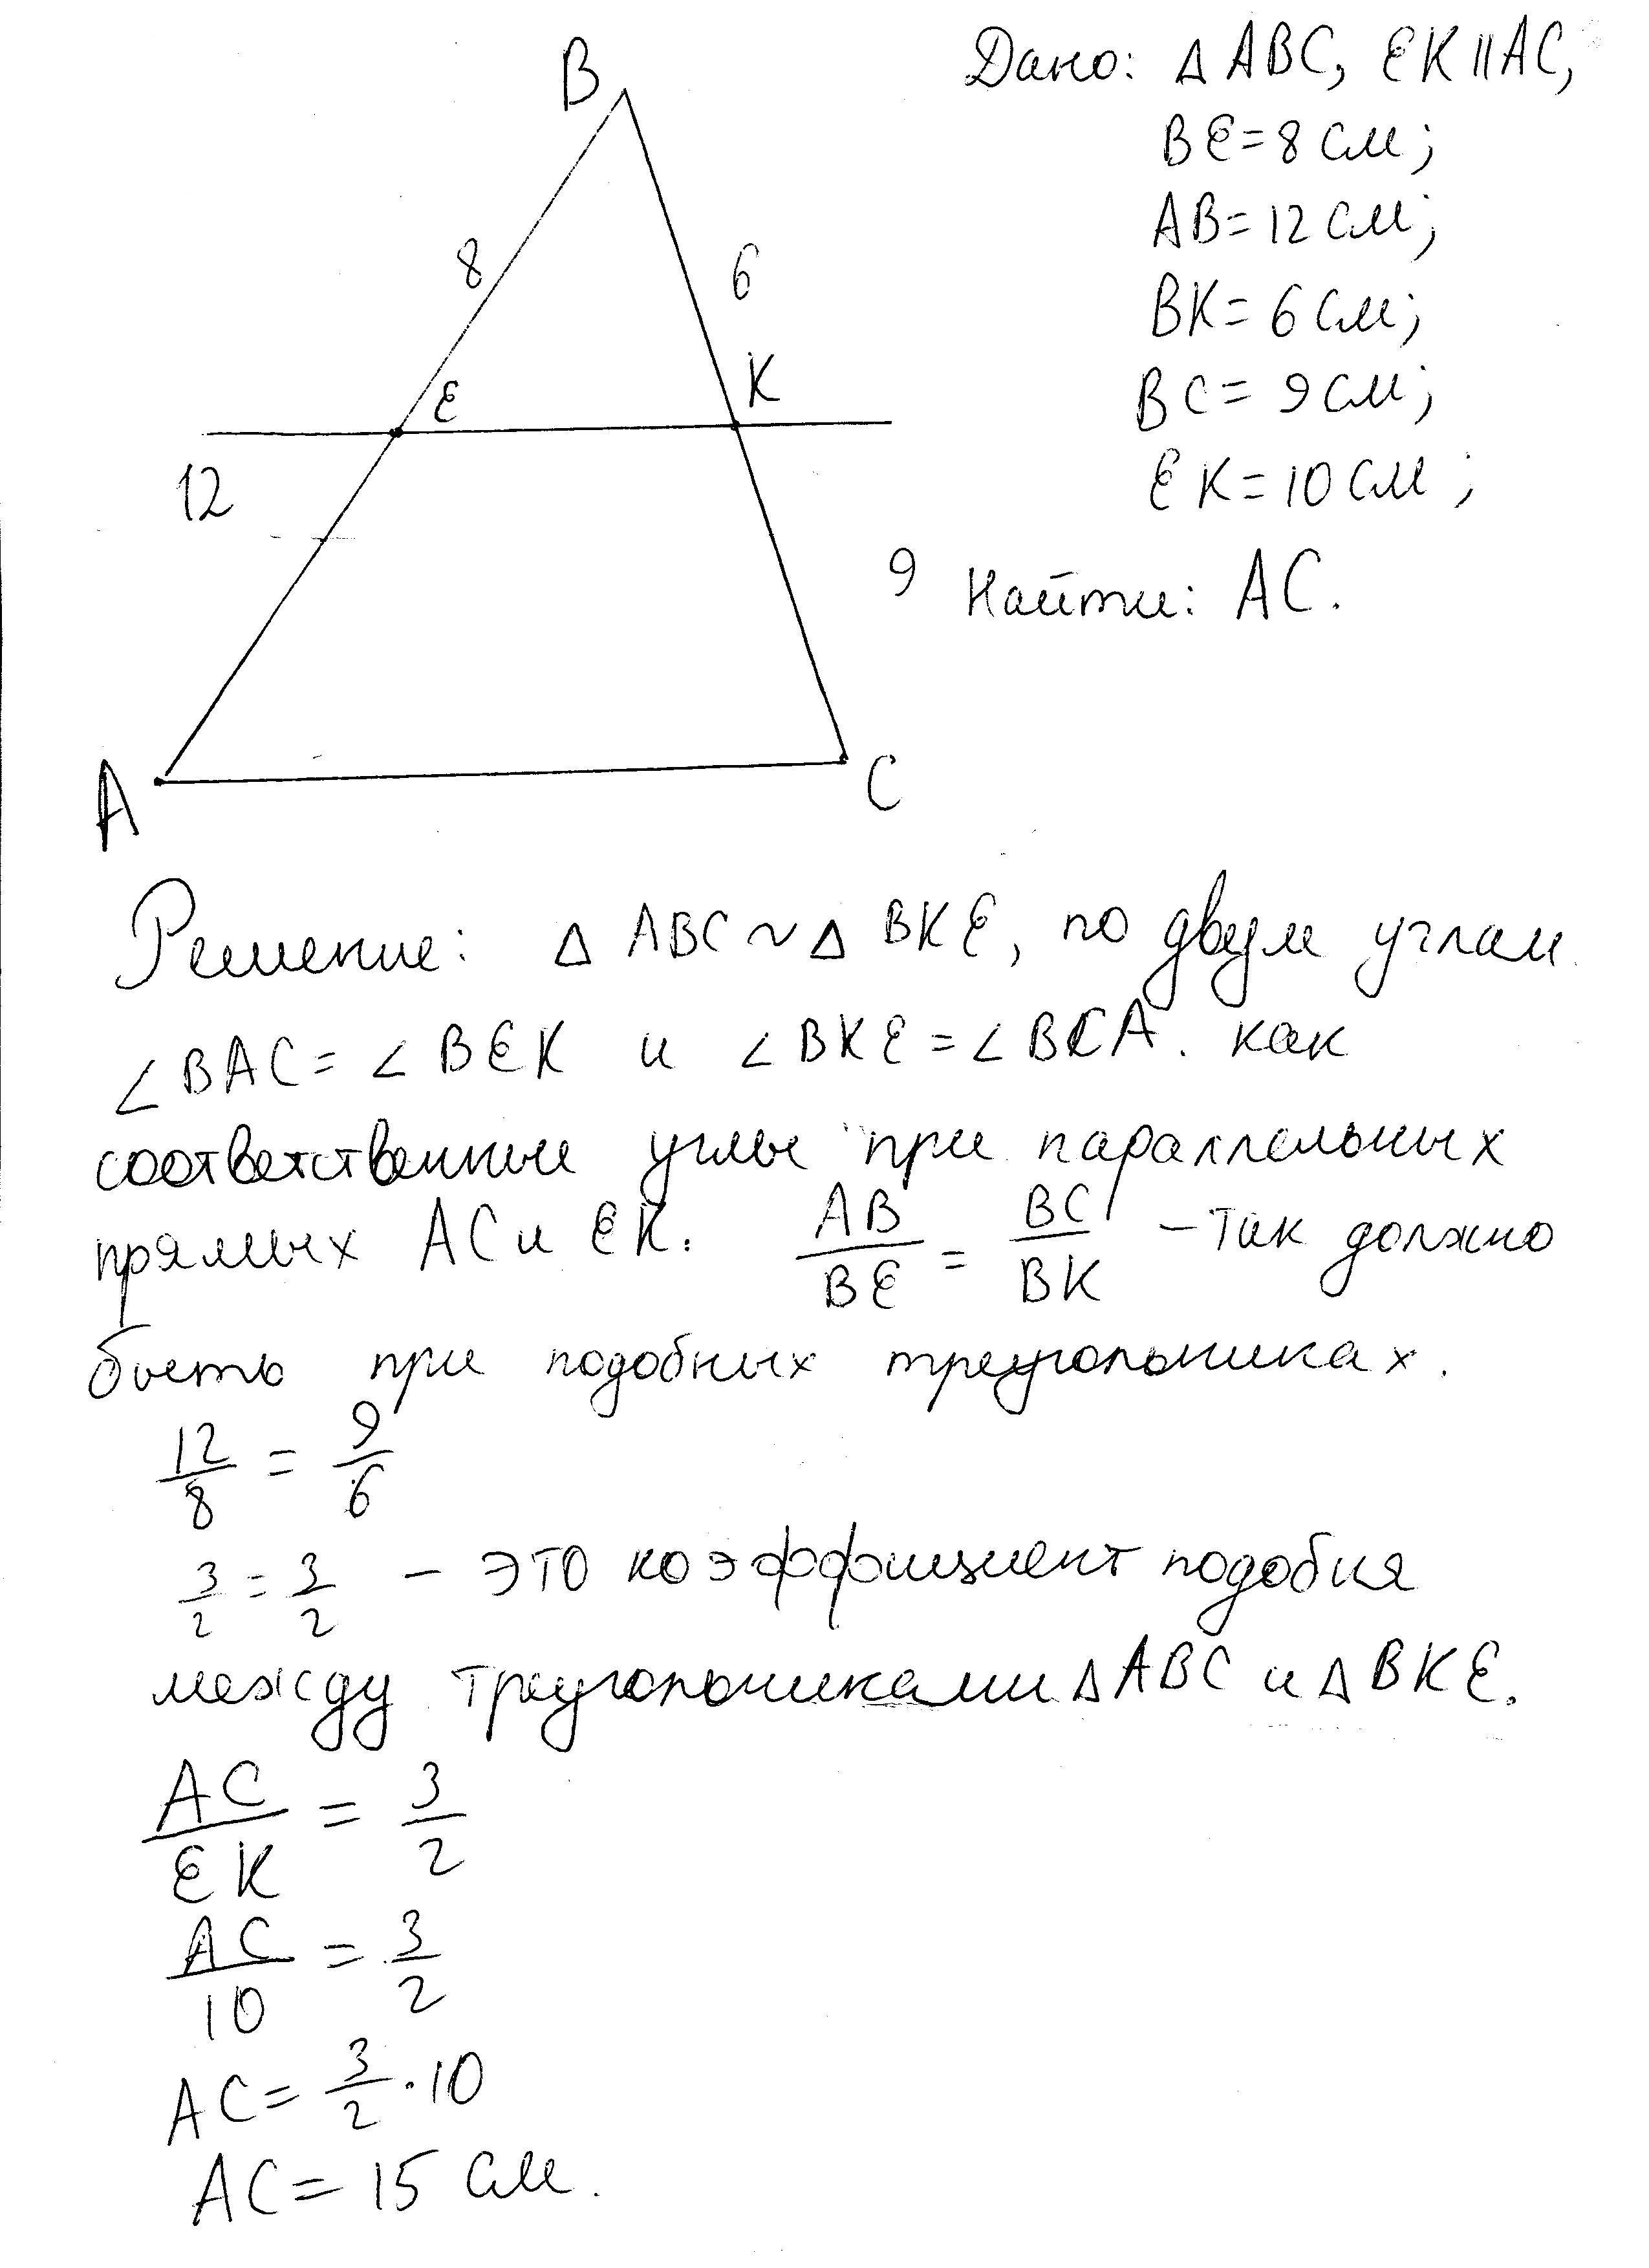 B
Дано: △ ABC, EK || AC,
BE = 8 см;
AB = 12 см;
8
6
BK = 6 см;
E
K
BC = 9 см;
12
EK = 10 см;
9
Найти: AC.
A
C
Решение: △ ABC ~ △ BKE, по двум углам
∠BAC = ∠BEK и ∠BKE = ∠BCA. как
соответственные углы при параллельных
прямых AC и EK. AB/BE = BC/BK – так должно
быть при подобных треугольниках.
12/8 = 9/6
3/2 = 3/2 – это коэффициент подобия
между треугольниками △ ABC и △ BKE.
AC/EK = 3/2
AC/10 = 3/2
AC = 3/2 · 10
AC = 15 см.